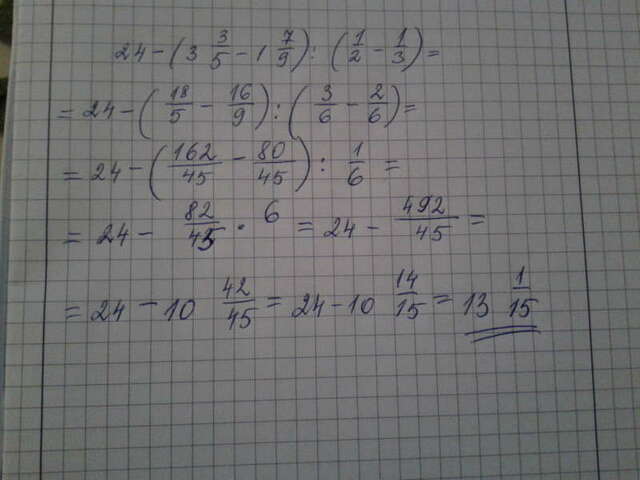 24 - (3 3/5 - 1 7/9) : (1/2 - 1/3) =
= 24 - (18/5 - 16/9) : (3/6 - 2/6) =
= 24 - (162/45 - 80/45) : 1/6 =
= 24 - 82/45 · 6 = 24 - 492/45 =
= 24 - 10 42/45 = 24 - 10 14/15 = 13 1/15